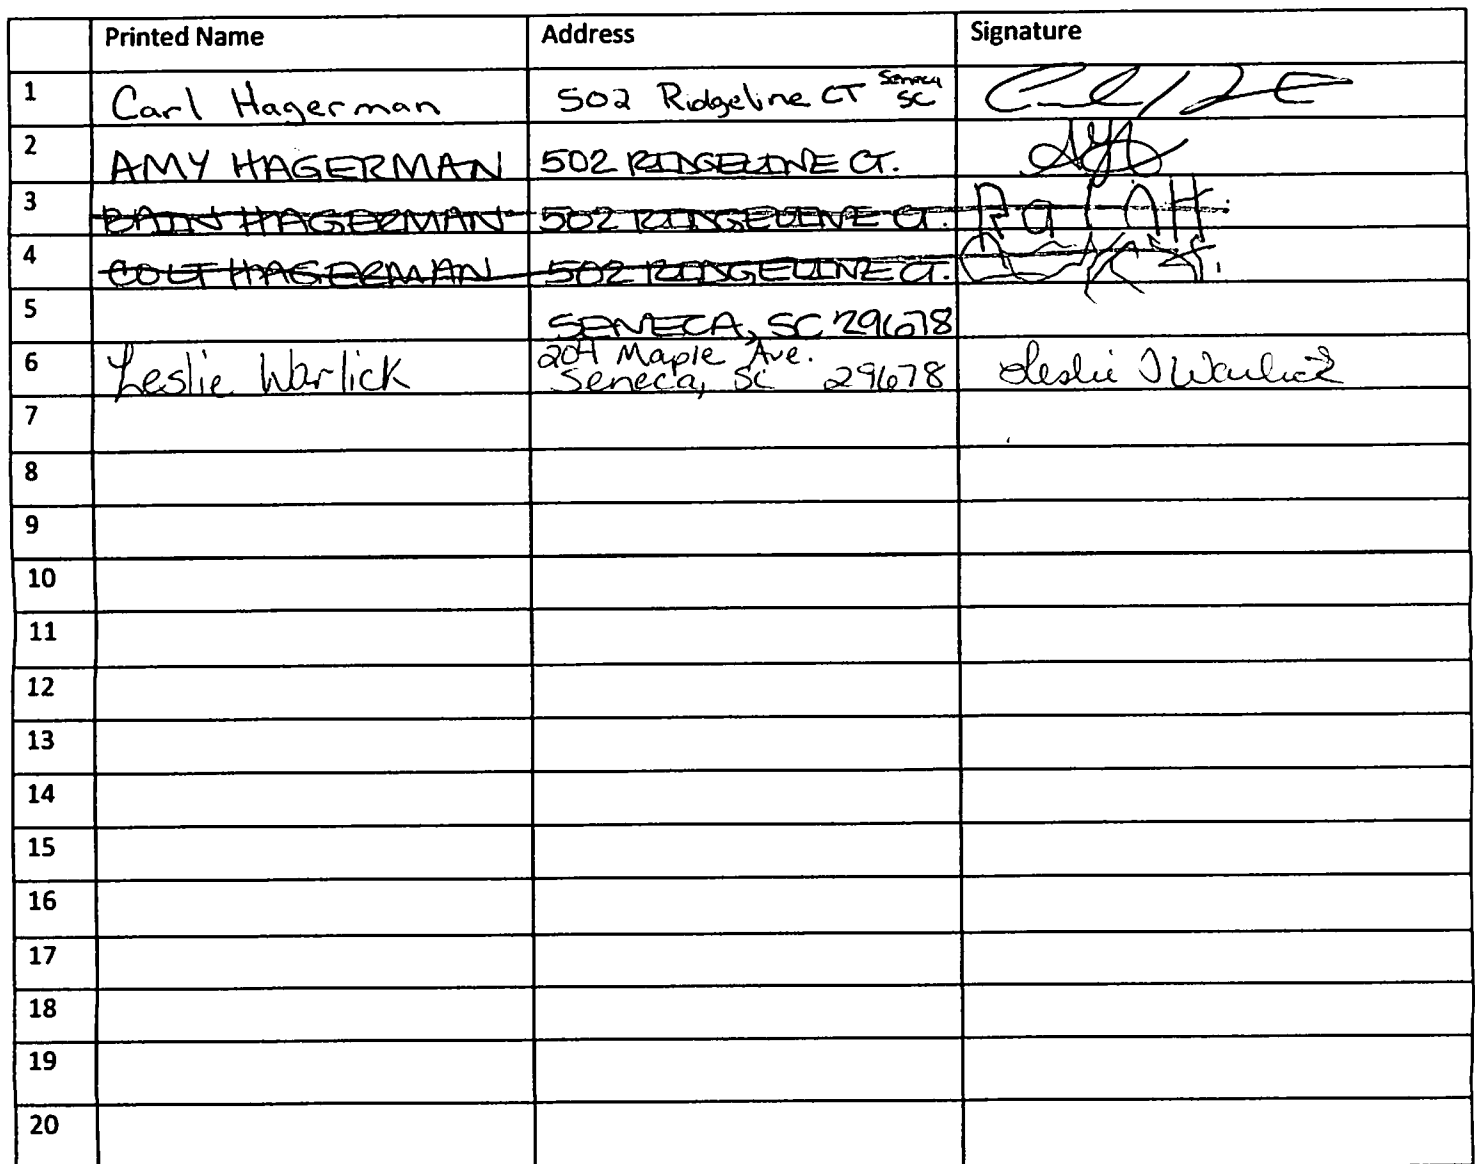 Printed Name Address Signature
1 Carl Hagerman 502 Ridgeline CT Seneca SC
2 AMY HAGERMAN 502 RIDGELINE CT.
3 HAGERMAN 502 RIDGELINE CT.
4 COLT HAGERMAN 502 RIDGELINE CT.
5 SENECA, SC 29678
6 Leslie Warlick 204 Maple Ave. Leslie J Warlick
Seneca, SC 29678
7
8
9
10
11
12
13
14
15
16
17
18
19
20